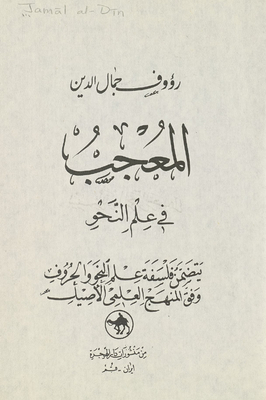 Jamāl al-Dīn
رؤوف جمال الدين
المعجب
في علم النحو
يتضمن فلسفة علم النحو والحروف
وفق المنهج العلمي الأصيل
من منشورات دار الهجرة
ايران - قم